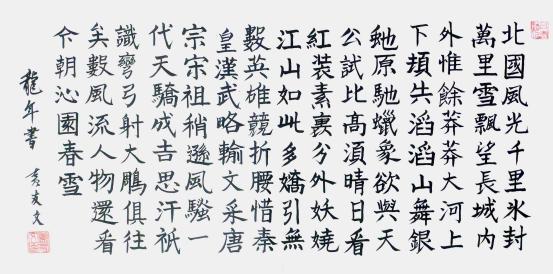 北國風光千里氷封
萬里雪飄望長城内
外惟餘莽莽大河上
下頓失滔滔山舞銀
虵原馳蠟象欲與天
公試比高湏晴日看
紅装素裹兮外妖嬈
江山如此多嬌引無
數英雄競折腰惜秦
皇漢武略輸文采唐
宗宋祖稍遜風騷一
代天驕成吉思汗祇
識彎弓射大鵰俱往
矣數風流人物還看
今朝沁園春雪
龍年書